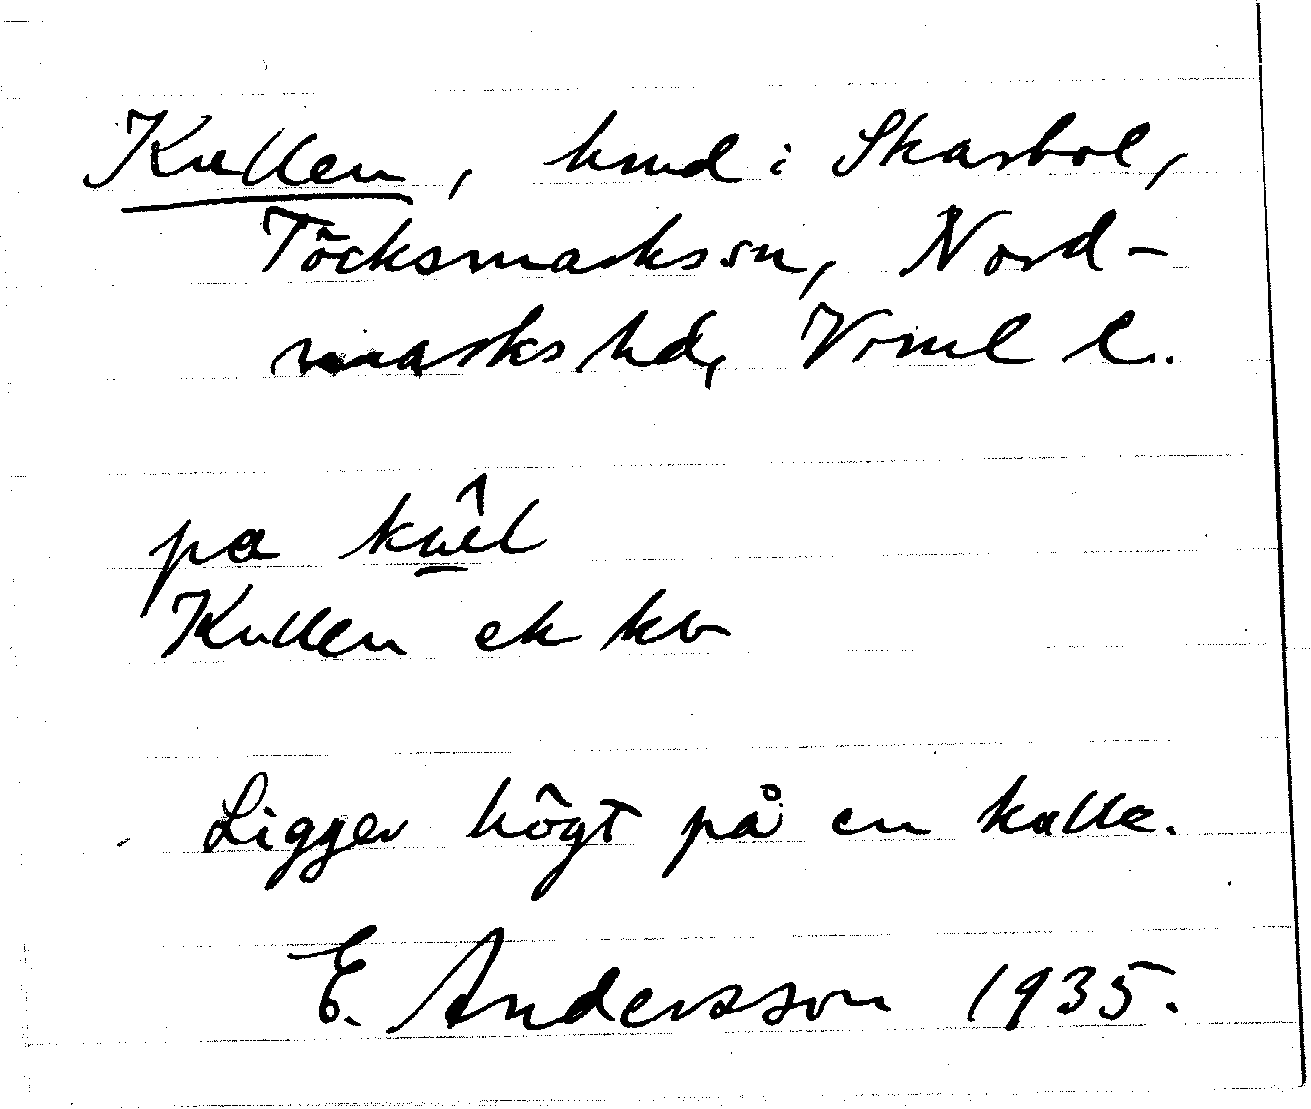 Kullen, hmd i Skarbol,
Töcksmarks sn, Nord-
marks hd, Vrml l.
pa ku̲l̂
Kullen ek kb
Ligger högt på en kulle.
E. Andersson 1935.